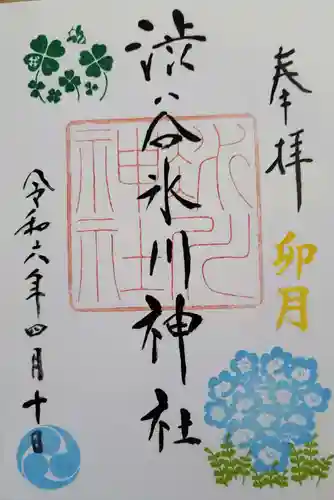 奉拝
卯月
渋谷氷川神社
氷川
神社
令和六年四月十日